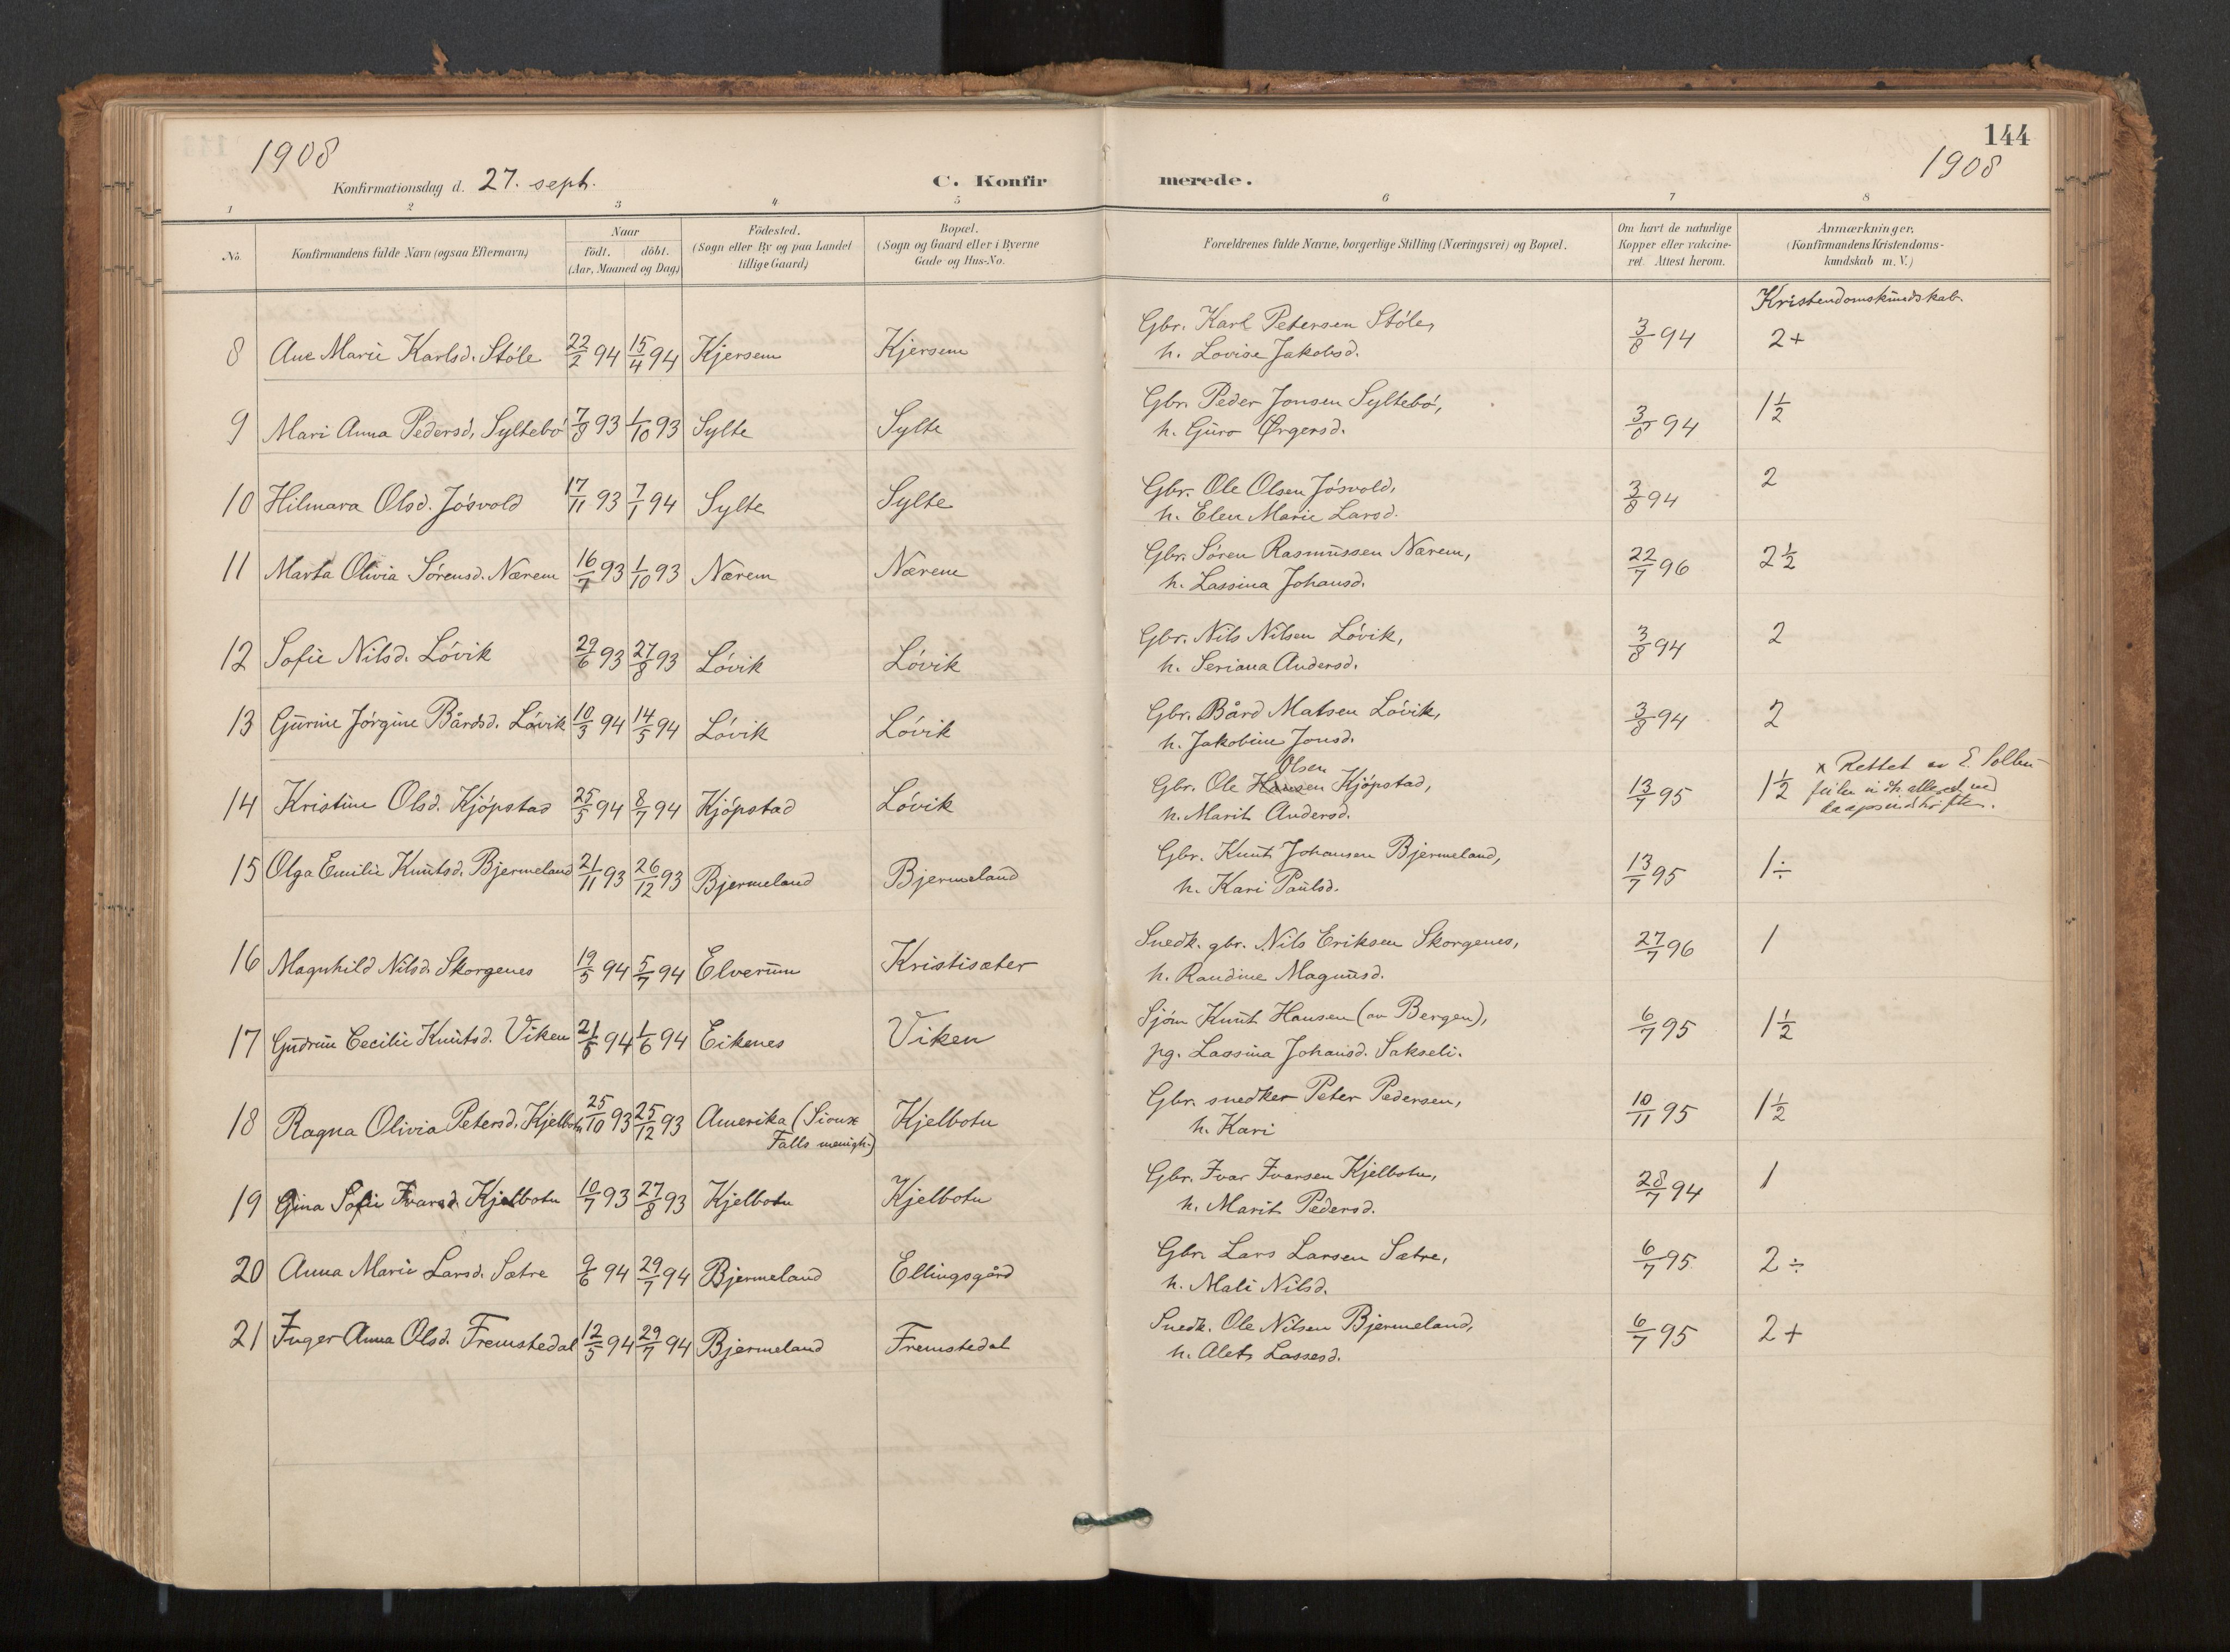 144
1908
1908
Konfirmationsdag d. 27. sept.
C. Konfirmerede.
1 2 3 4 5 6 7 8
No.
Konfirmandens fulde Navn (ogsaa Efternavn)
Naar
födt. döbt.
(Aar, Maaned og Dag)
Födested.
(Sogn eller By og paa Landet
tillige Gaard)
Bopæl.
(Sogn og Gaard eller i Byerne
Gade og Hus-No.
Forældrenes fulde Navne, borgerlige Stilling (Næringsvei) og Bopæl.
Om havt de naturlige
Kopper eller vaccine-
ret. Attest herom.
Anmærkninger.
(Konfirmandens Kristendoms-
kundskab m. V.)
Kristendomskundskab.
8 Ane Marie Karlsd. Støle 22/2 94 15/4 94 Kjersem Kjersem Gbr. Karl Petersen Støle, 3/8 94 2+
h. Lovise Jakobsd.
9 Mari Anna Pedersd. Syltebø 7/8 93 1/10 93 Sylte Sylte Gbr. Peder Jonsen Syltebø, 3/8 94 1 1/2
h. Guro Ørgersd.
10 Hilmara Olsd. Jøsvold 17/11 93 7/1 94 Sylte Sylte Gbr. Ole Olsen Jøsvold, 3/8 94 2
h. Elen Marie Larsd.
11 Marta Olivia Sørensd. Nærem 16/7 93 1/10 93 Nærem Nærem Gbr. Søren Rasmussen Nærem, 22/7 96 2 1/2
h. Lassina Johansd.
12 Sofie Nilsd. Løvik 29/6 93 27/8 93 Løvik Løvik Gbr. Nils Nilsen Løvik, 3/8 94 2
h. Seriana Andersd.
13 Gurine Jørgine Bårdsd. Løvik 10/3 94 14/5 94 Løvik Løvik Gbr. Bård Matsen Løvik, 3/8 94 2
h. Jakobine Jonsd.
Olsen
14 Kristine Olsd. Kjøpstad 25/5 94 8/7 94 Kjøpstad Løvik Gbr. Ole Hansen Kjøpstad, 13/7 95 1 1/2 x Rettet av E. Solbu
h. Marit Andersd.
15 Olga Emilie Knutsd. Bjermeland 21/11 93 26/12 93 Bjermeland Bjermeland Gbr. Knut Johansen Bjermeland, 13/7 95 1÷
h. Kari Paulsd.
16 Magnhild Nilsd. Skorgenes 19/5 94 5/7 94 Elverum Kristisæter Snedk. gbr. Nils Eriksen Skorgenes, 27/7 96 1
h. Randine Magnusd.
17 Gudrun Cecilie Knutsd. Viken 21/5 94 1/6 94 Eikenes Viken Sjøm Knut Hansen (av Bergen), 6/7 95 1 1/2
pg. Lassina Johansd. Sakseli.
18 Ragna Olivia Petersd. Kjelbotn 25/10 93 25/12 93 Amerika (Sioux Kjelbotn Gbr. snedker Peter Pedersen, 10/11 95 1 1/2
Falls menigh.) h. Kari
19 Gina Sofie Ivarsd. Kjelbotn 10/7 93 27/8 93 Kjelbotn Kjelbotn Gbr. Ivar Ivarsen Kjelbotn, 28/7 94 1
h. Marit Pedersd.
20 Anna Marie Larsd. Sætre 9/6 94 29/7 94 Bjermeland Ellingsgård Gbr. Lars Larsen Sætre, 6/7 95 2÷
h. Mali Nilsd.
21 Inger Anna Olsd. Fremstedal 12/5 94 29/7 94 Bjermeland Fremstedal Snedk. Ole Nilsen Bjermeland, 6/7 95 2+
h. Alet Lassesd.